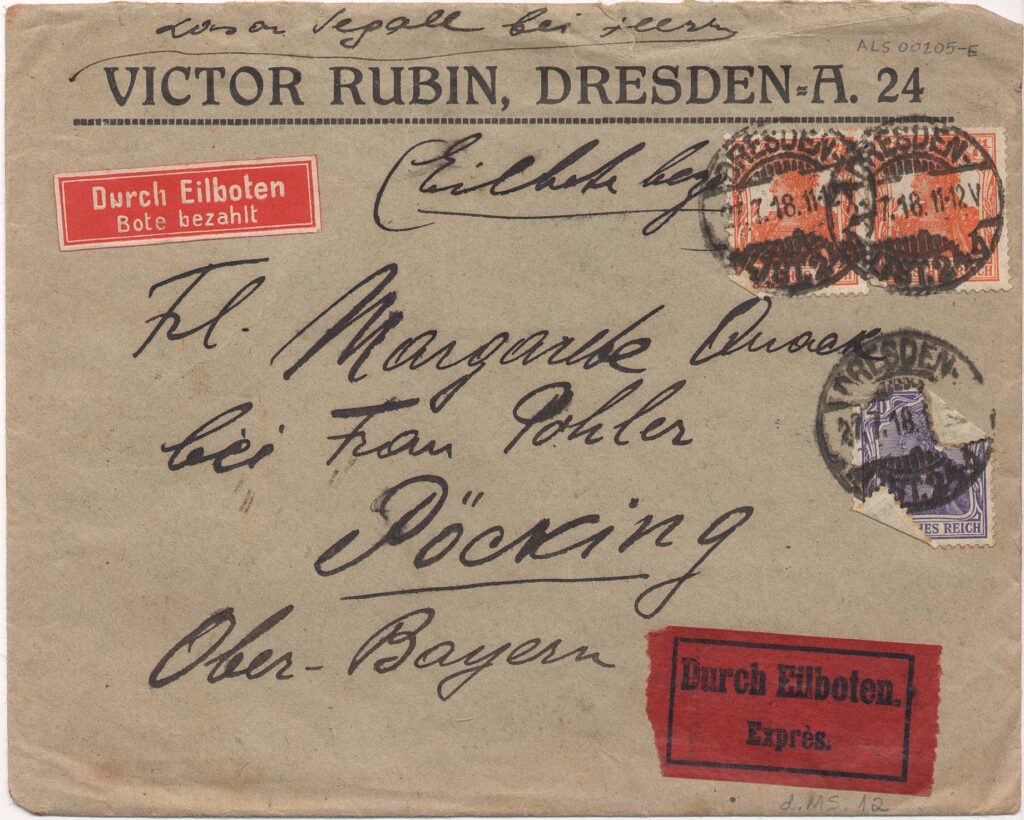 Lasar Segall bei Herrn
ALS 00205-E
VICTOR RUBIN, DRESDEN=A. 24
Durch Eilboten
Bote bezahlt
Eilbote
DRESDEN-
27.7.18.11-12V
DRESDEN-
7.18.11-12V
REICH
Frl. Margarete Quack
bei Frau Pohler
Pöcking
Ober-Bayern
DRESDEN-
20
27.7.18.
HES REICH
Durch Eilboten.
Exprès.
d.MS.12